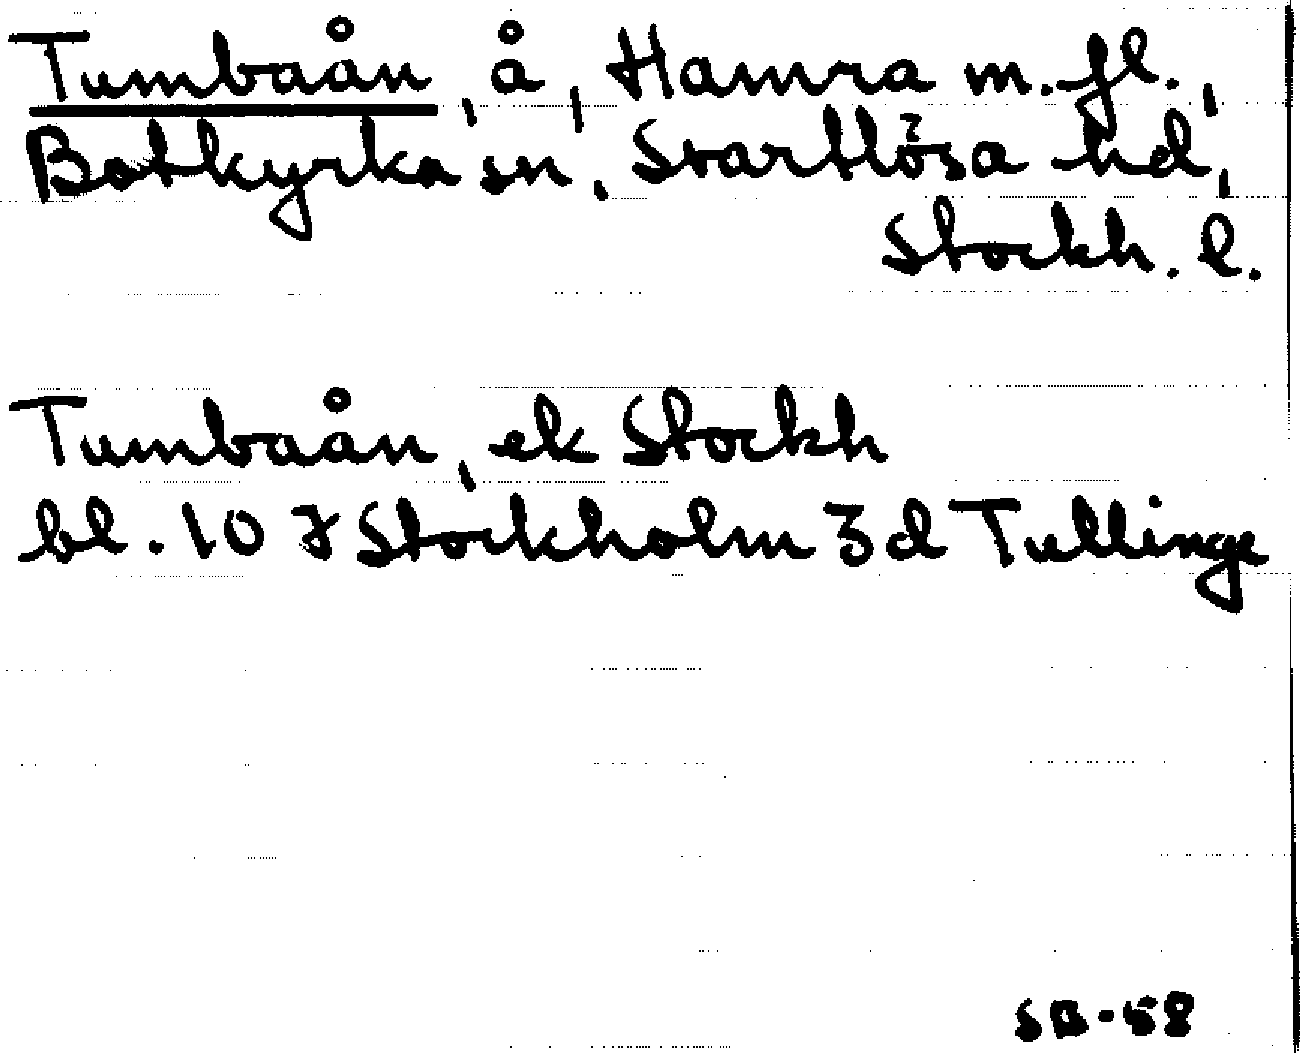 Tumbaån, å, Hamra m.fl.,
Botkyrka sn, Svartlösa hd,
Stockh. l.
Tumbaån, ek Stockh
bl. 10 J Stockholm 3d Tullinge
SB-58